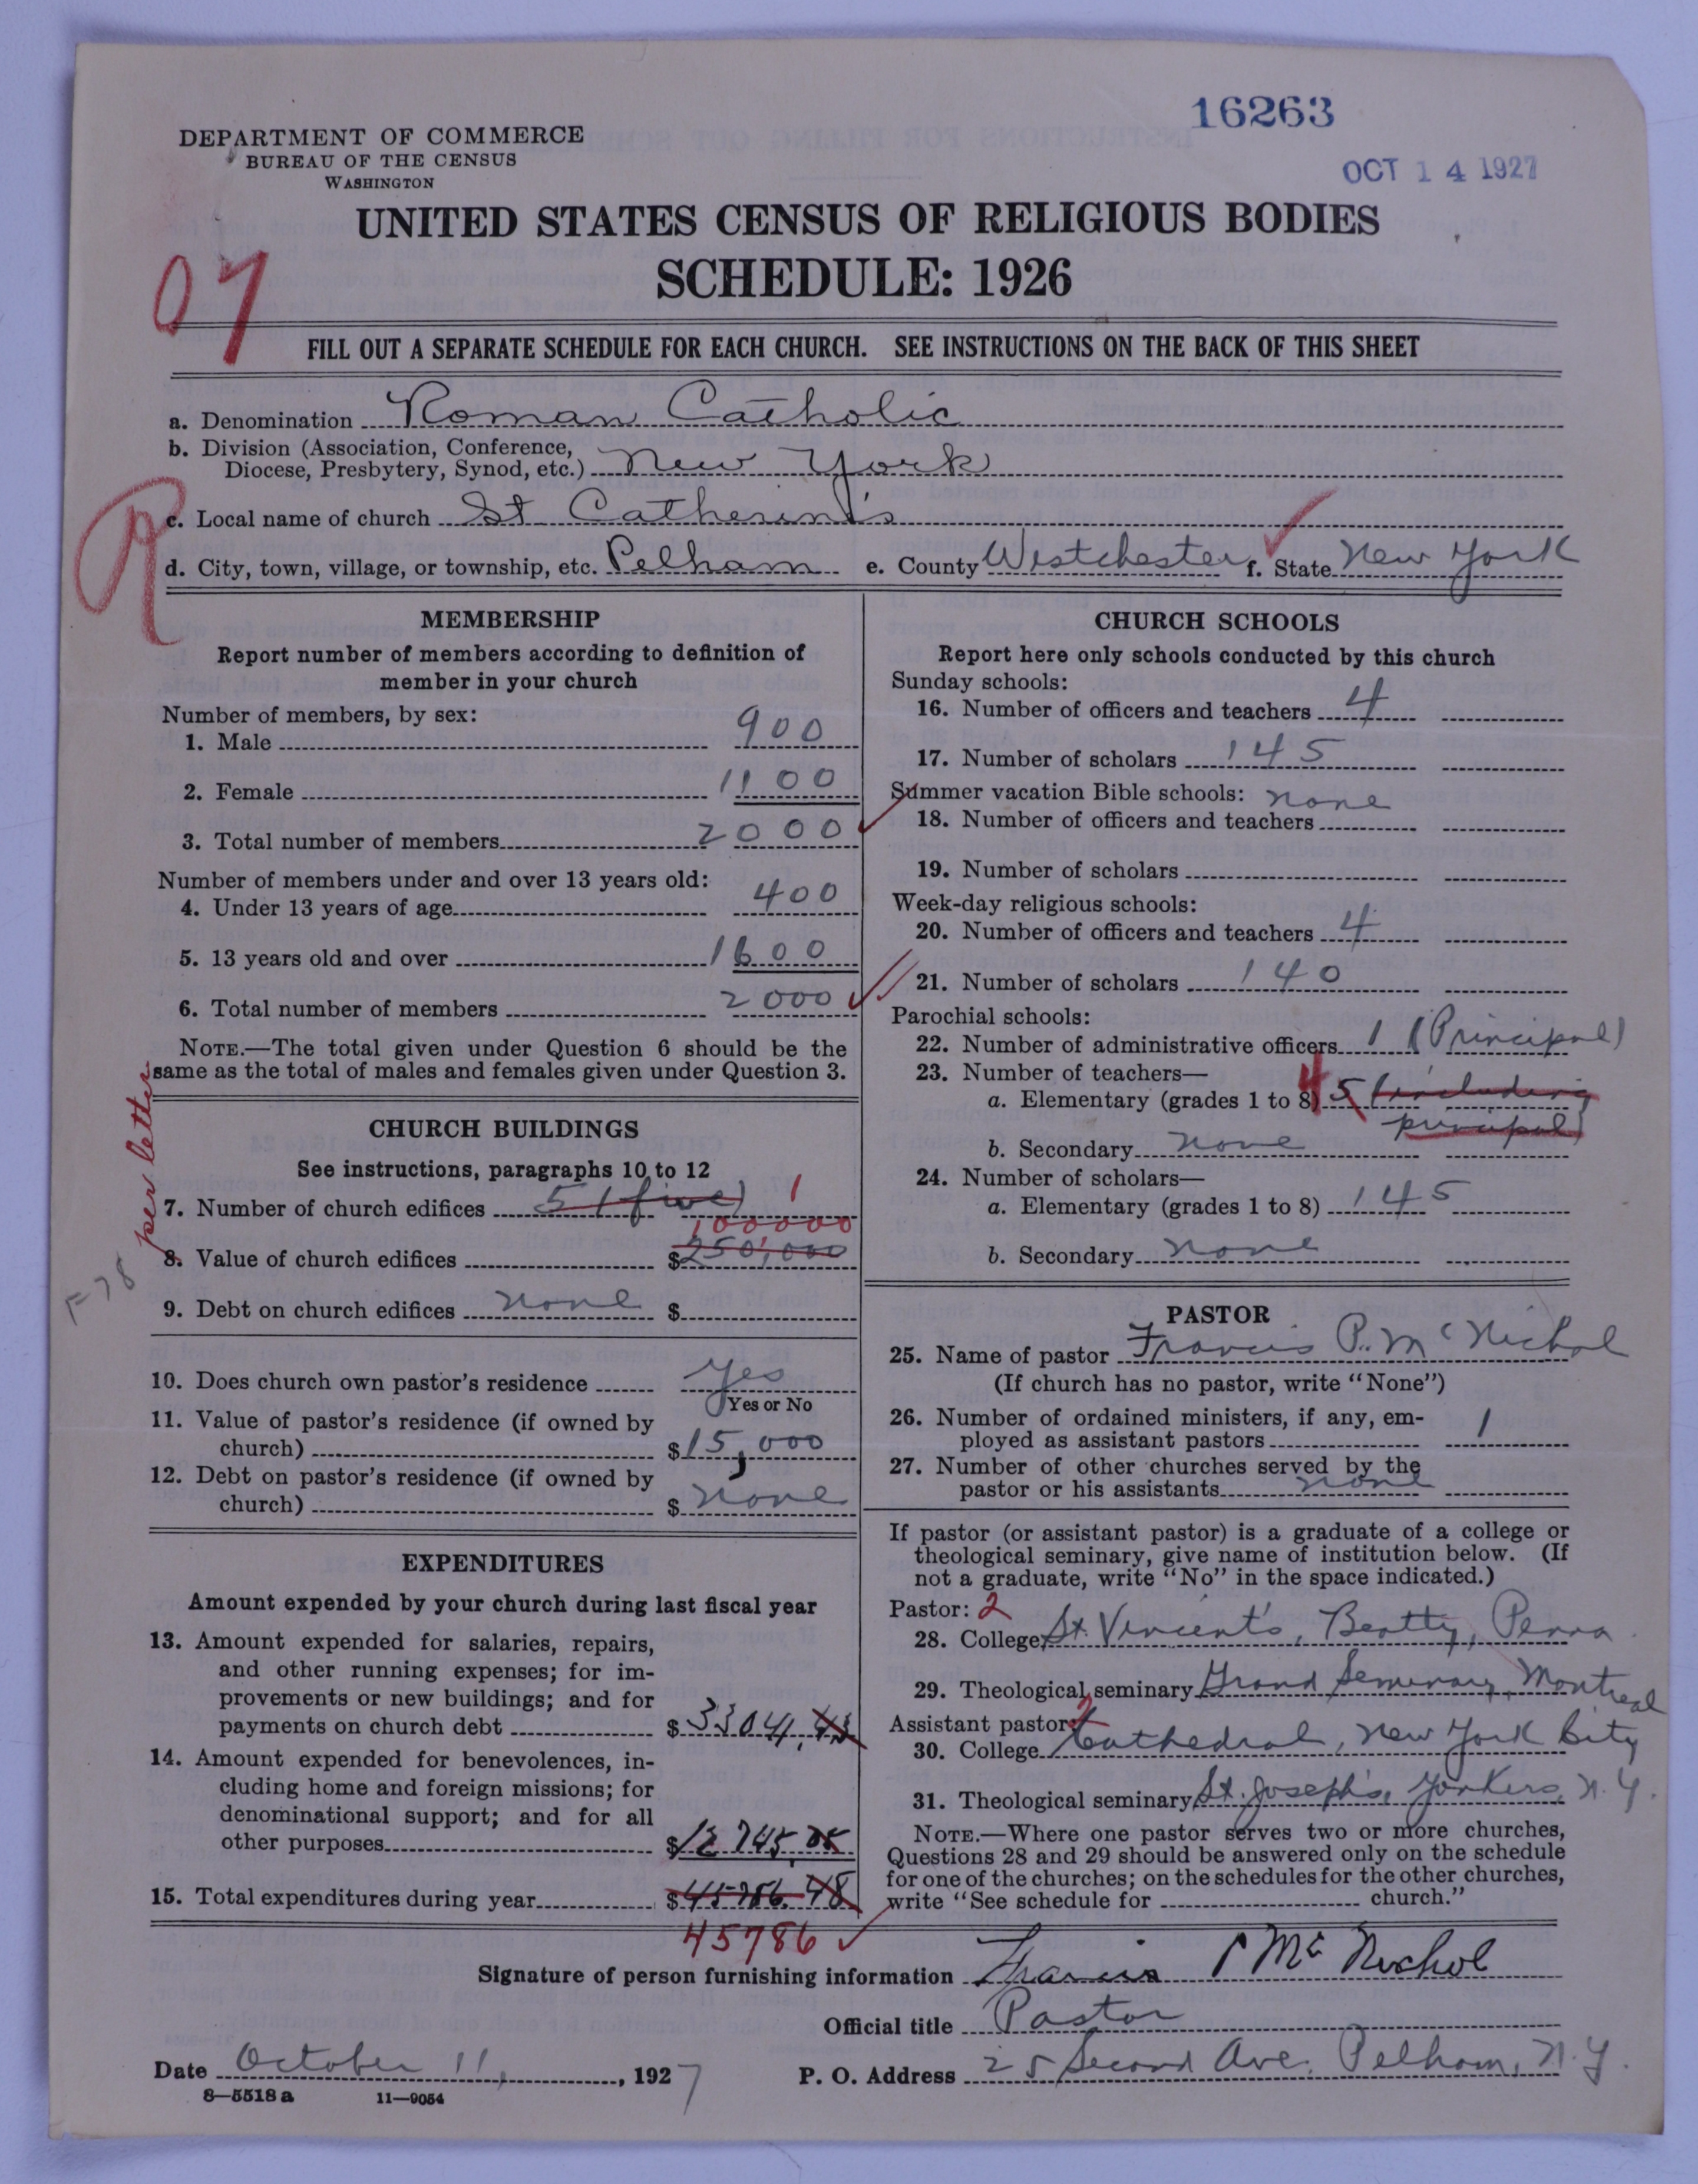 16263
OCT 14 1927
DEPARTMENT OF COMMERCE
BUREAU OF THE CENSUS
WASHINGTON
UNITED STATES CENSUS OF RELIGIOUS BODIES
SCHEDULE: 1926
07
FILL OUT A SEPARATE SCHEDULE FOR EACH CHURCH. SEE INSTRUCTIONS ON THE BACK OF THIS SHEET
a. Denomination Roman Catholic
b. Division (Association, Conference,
Diocese, Presbytery, Synod, etc.) New York
R
c. Local name of church St Catherin's
d. City, town, village, or township, etc. Pelham e. County Westchester f. State New York
MEMBERSHIP
Report number of members according to definition of
member in your church
Number of members, by sex:
1. Male 900
2. Female 1100
3. Total number of members 2000
Number of members under and over 13 years old:
4. Under 13 years of age 400
5. 13 years old and over 1600
6. Total number of members 2000
NOTE.—The total given under Question 6 should be the
same as the total of males and females given under Question 3.
per letter
F-78
CHURCH BUILDINGS
See instructions, paragraphs 10 to 12
7. Number of church edifices 5 (five) 1
100000
8. Value of church edifices $250,000
9. Debt on church edifices none $
10. Does church own pastor's residence yes
Yes or No
11. Value of pastor's residence (if owned by
church) $15,000
12. Debt on pastor's residence (if owned by
church) $ none
EXPENDITURES
Amount expended by your church during last fiscal year
13. Amount expended for salaries, repairs,
and other running expenses; for im-
provements or new buildings; and for
payments on church debt $33041.43
14. Amount expended for benevolences, in-
cluding home and foreign missions; for
denominational support; and for all
other purposes $12745.05
15. Total expenditures during year $45786.48
45786
CHURCH SCHOOLS
Report here only schools conducted by this church
Sunday schools:
16. Number of officers and teachers 4
17. Number of scholars 145
Summer vacation Bible schools: none
18. Number of officers and teachers
19. Number of scholars
Week-day religious schools:
20. Number of officers and teachers 4
21. Number of scholars 140
Parochial schools:
22. Number of administrative officers 1 (Principal)
23. Number of teachers—
a. Elementary (grades 1 to 8) 4 5 (including
principal)
b. Secondary none
24. Number of scholars—
a. Elementary (grades 1 to 8) 145
b. Secondary none
PASTOR
25. Name of pastor Francis P. McNichol
(If church has no pastor, write "None")
26. Number of ordained ministers, if any, em-
ployed as assistant pastors 1
27. Number of other churches served by the
pastor or his assistants none
If pastor (or assistant pastor) is a graduate of a college or
theological seminary, give name of institution below. (If
not a graduate, write "No" in the space indicated.)
Pastor: 2
28. College St. Vincent's, Beatty, Penna
29. Theological seminary Grand Seminary, Montreal
Assistant pastor: 2
30. College Cathedral, New York City
31. Theological seminary St. Joseph's, Yonkers, N.Y.
NOTE.—Where one pastor serves two or more churches,
Questions 28 and 29 should be answered only on the schedule
for one of the churches; on the schedules for the other churches,
write "See schedule for church."
Signature of person furnishing information Francis P McNichol
Official title Pastor
Date October 11, 1927 P. O. Address 25 Second Ave. Pelham, N.Y.
8—5518 a 11—9054